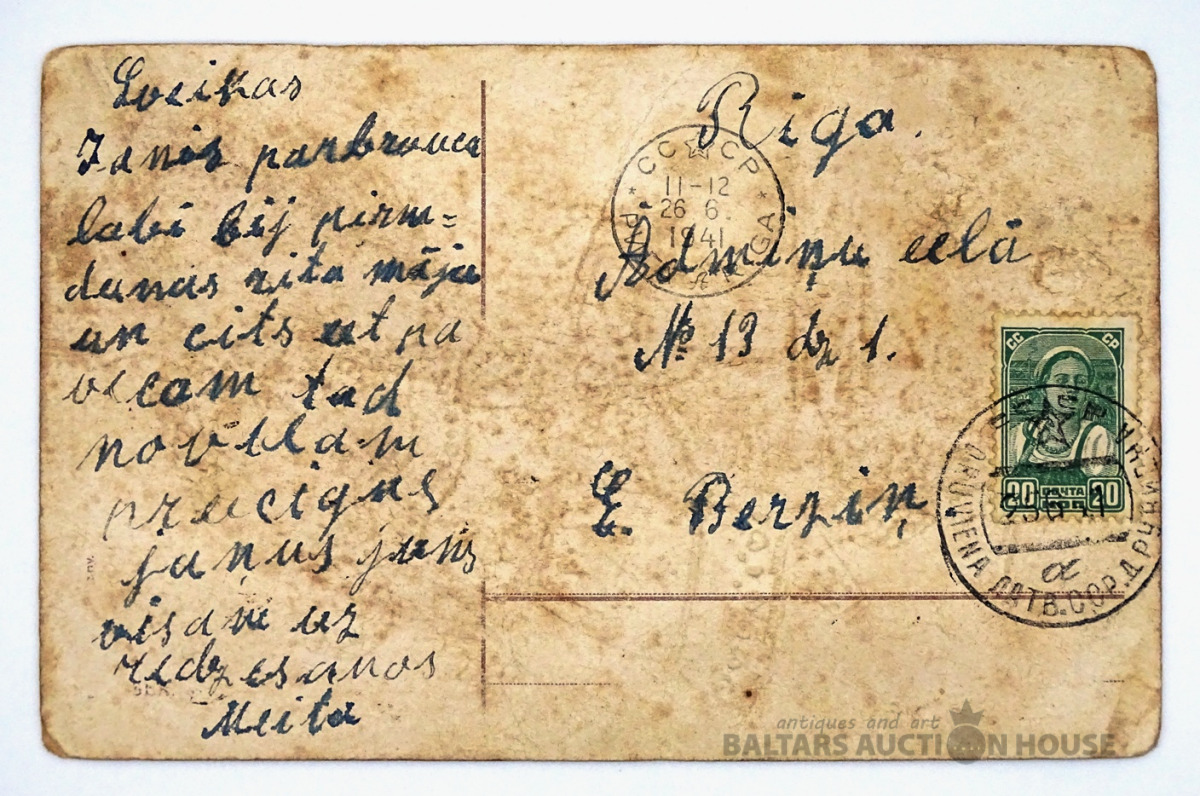 Sveikas
Janis parbrauca
labi bij pirm=
danas rita māja
un cits et pa
vecam tad
novelam
precigus
jaņus jums
visam uz
redzesanos
Meita
Riga.
Ādmiņu eelā
№ 13 dz 1.
E. Berziņ
СС СР
11-12
26 6.
1941
RIGA
СС СР
20 ПОЧТА 20
DRUVIENA ЛАТВ.ССР. ДРУВИЕНА
α
antiques and art
BALTARS AUCTION HOUSE